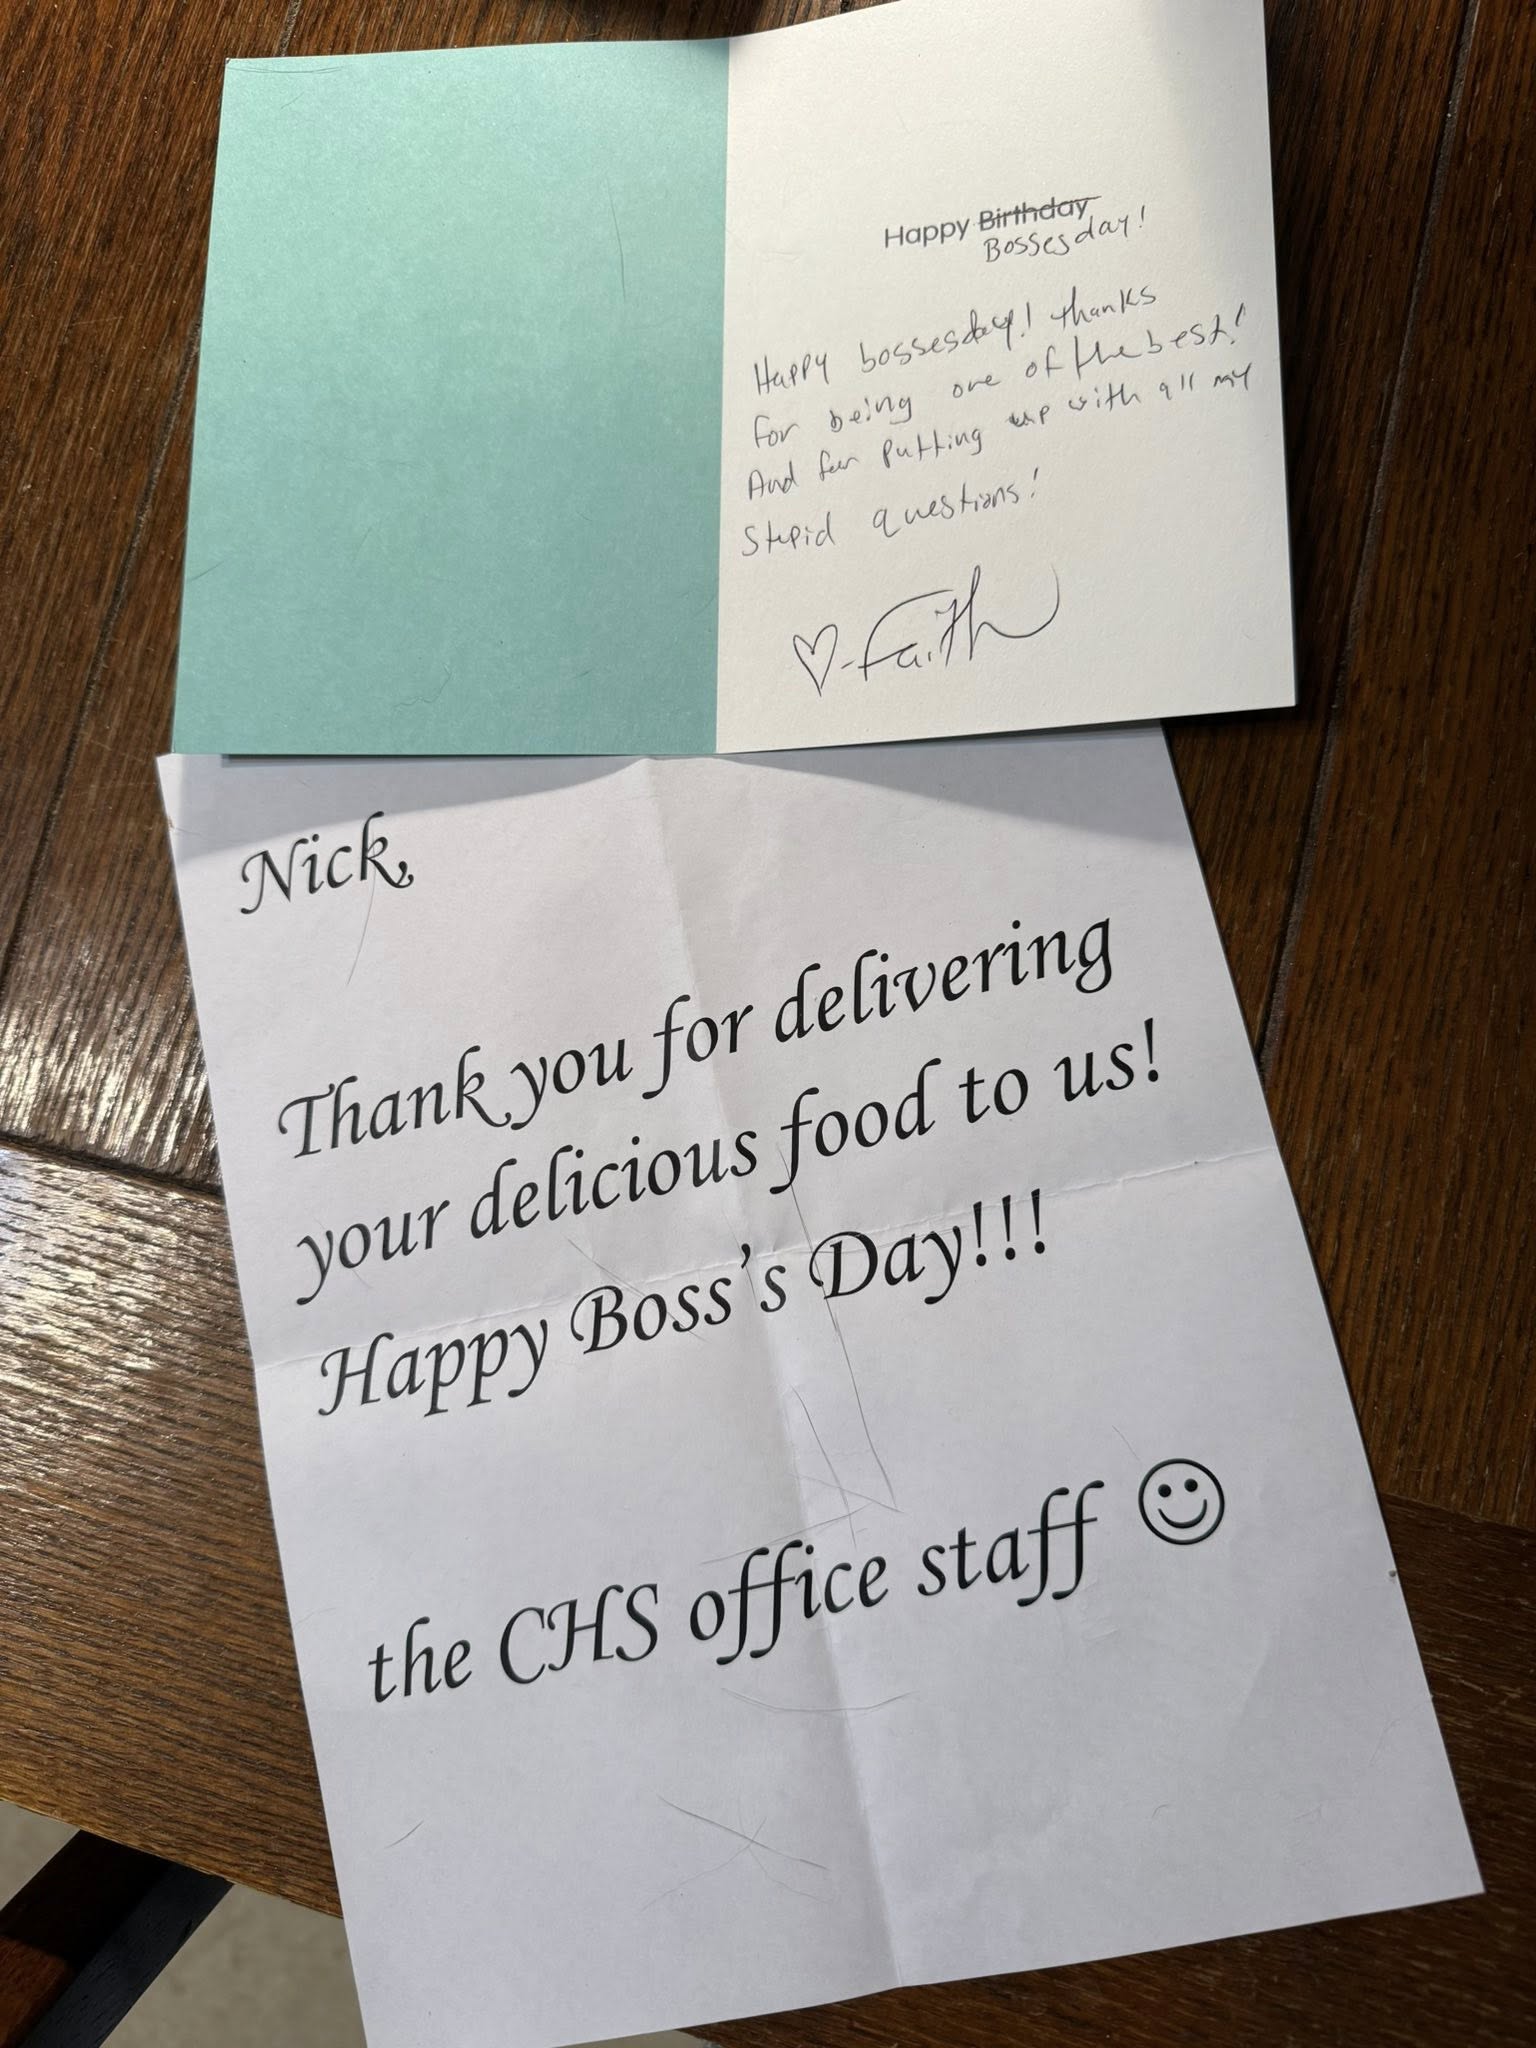 Happy Birthday
Bossesday!
Happy bossesday! thanks
for being one of the best!
And for putting up with all my
Stupid questions!
♡-Faith
Nick,
Thank you for delivering
your delicious food to us!
Happy Boss's Day!!!
the CHS office staff ☺